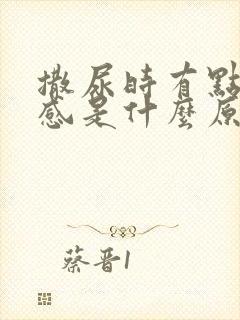 撒尿時有點
感是什麼原
蔡晋1